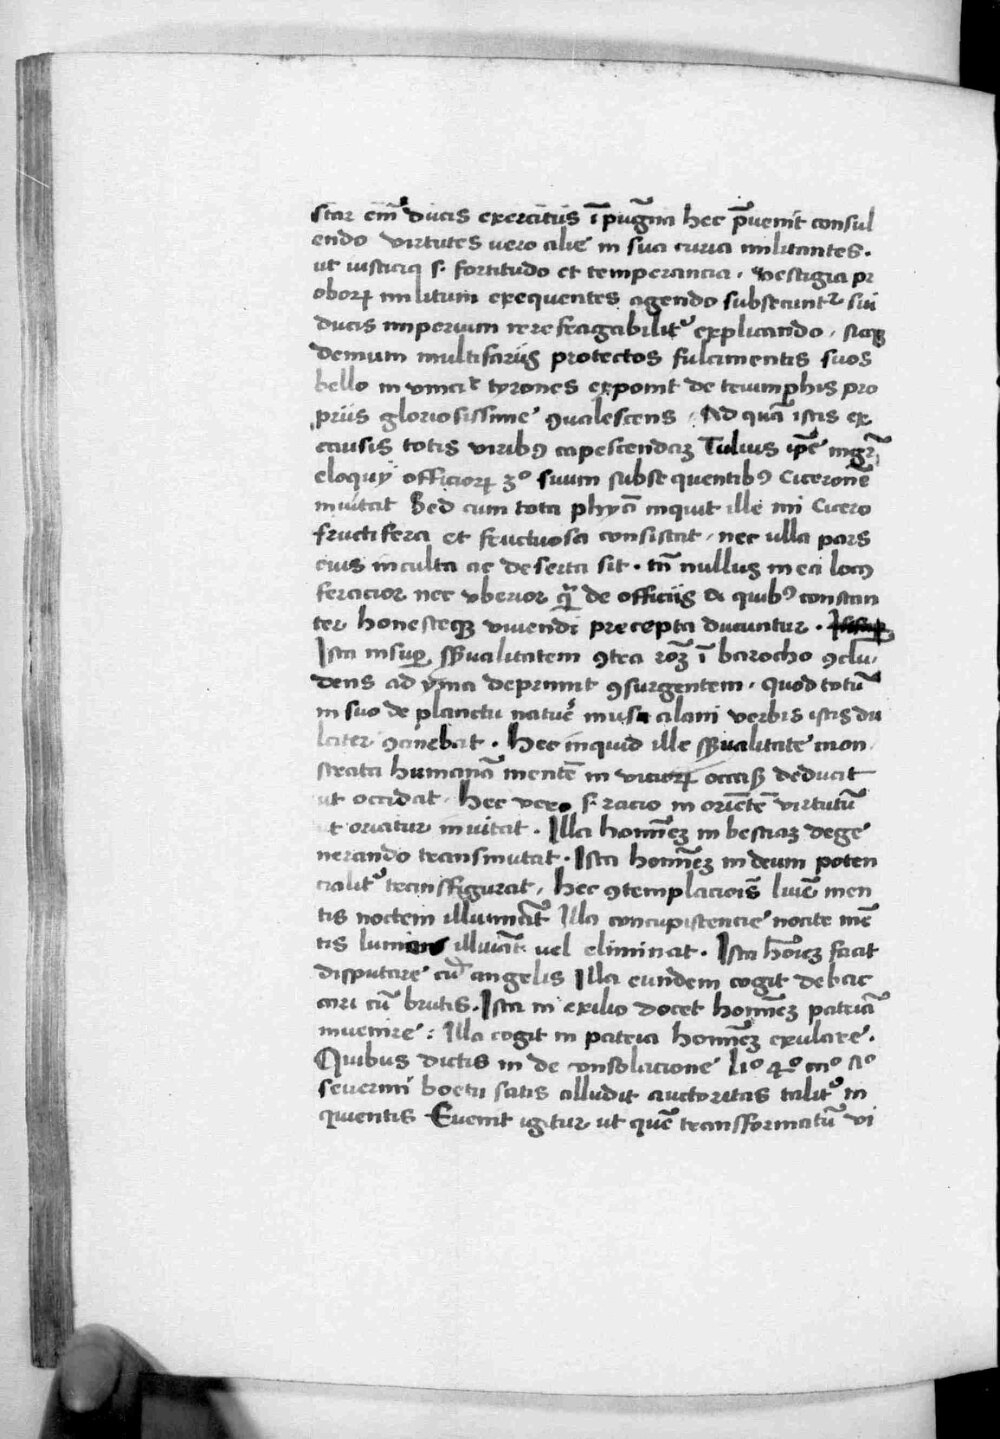 star em̄ ducis exercitus ī pugna hec p̄uenit consul
endo virtutes vero alie in sua curia militantes.
ut iusticia s. fortitudo et temperancia. vestigia pr
oborꝝ militum exequentes agendo subsecuntr sui
ducis imperium irrefragabilitr explicando. sicqꝫ
demum multifariis protectos fulcimentis suos
bello in tyrones exponit de triumphis pro
priis gloriosissime ꝯualescens. Ad quā istis ex
causis totis viribꝰ capescendaꝫ Tulius ip̄e
eloquij officiorꝝ 3o suum subsequentibꝰ Ciceronē
inuitat Sed cum tota phy̅a inquit ille mi Cicero
fructifera et fructuosa consistat. nec ulla pars
eius inculta ac deserta sit. tn̄ nullus in ea locꝰ
feracior nec vberior q̄ de officiis a quibꝰ constan
ter honesteqꝫ viuendi precepta ducuntur.
Ista insuꝑ ꝯtra roꝫ ī barocho ꝯclu
dens ad yma deprimit ꝯsurgentem. Quod totū
in suo de planctu nature musa alani verbis istis du
lciter ꝯcinebat. Hec inquid ille mon
strata humanā mentē in viciorꝝ occasū deducit
ut occidat. hec vero s. racio in orientē virtutū
ut oriatur inuitat. Illa hominēꝫ in bestiaꝫ dege
nerando transmutat. Ista hominēꝫ in deum poten
cialitr transfigurat. hec ꝯtemplacionis lumē men
tis noctem illuminat Illa concupiscencie nocte mē
tis lumen vel eliminat. Ista hoīeꝫ facit
disputare cū angelis Illa eundem cogit debac
cari cū brutis. Ista in exilio docet hominēꝫ patriā
inuenire: Illa cogit in patria hominēꝫ exulare.
Quibus dictis in de consolacione lio 4o
seuerini boetii satis alludit auctoritas talitr in
quientis Euenit igitur ut quē transformatū vi